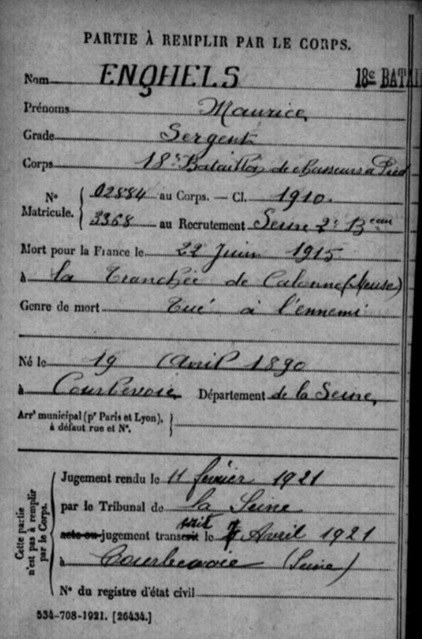 PARTIE À REMPLIR PAR LE CORPS.
Nom ENGHELS 18e BATAI
Prénoms Maurice
Grade Sergent
Corps 18e Bataillon de chasseurs à Pied
N° 02884 au Corps. — Cl. 1910.
Matricule. 3368 au Recrutement Seine 2e Beau
Mort pour la France le 22 Juin 1915
à la Tranchée de Calonne (Meuse)
Genre de mort Tué à l'ennemi
Né le 19 Avril 1890
à Courbevoie Département de la Seine
Arrt municipal (pr Paris et Lyon),
à défaut rue et N°.
Cette partie
n'est pas à remplir
par le Corps.
Jugement rendu le 11 février 1921
par le Tribunal de la Seine
acte ou jugement transcrit le 7 Avril 1921
à Courbevoie (Seine)
N° du registre d'état civil
534-708-1921. [26434.]